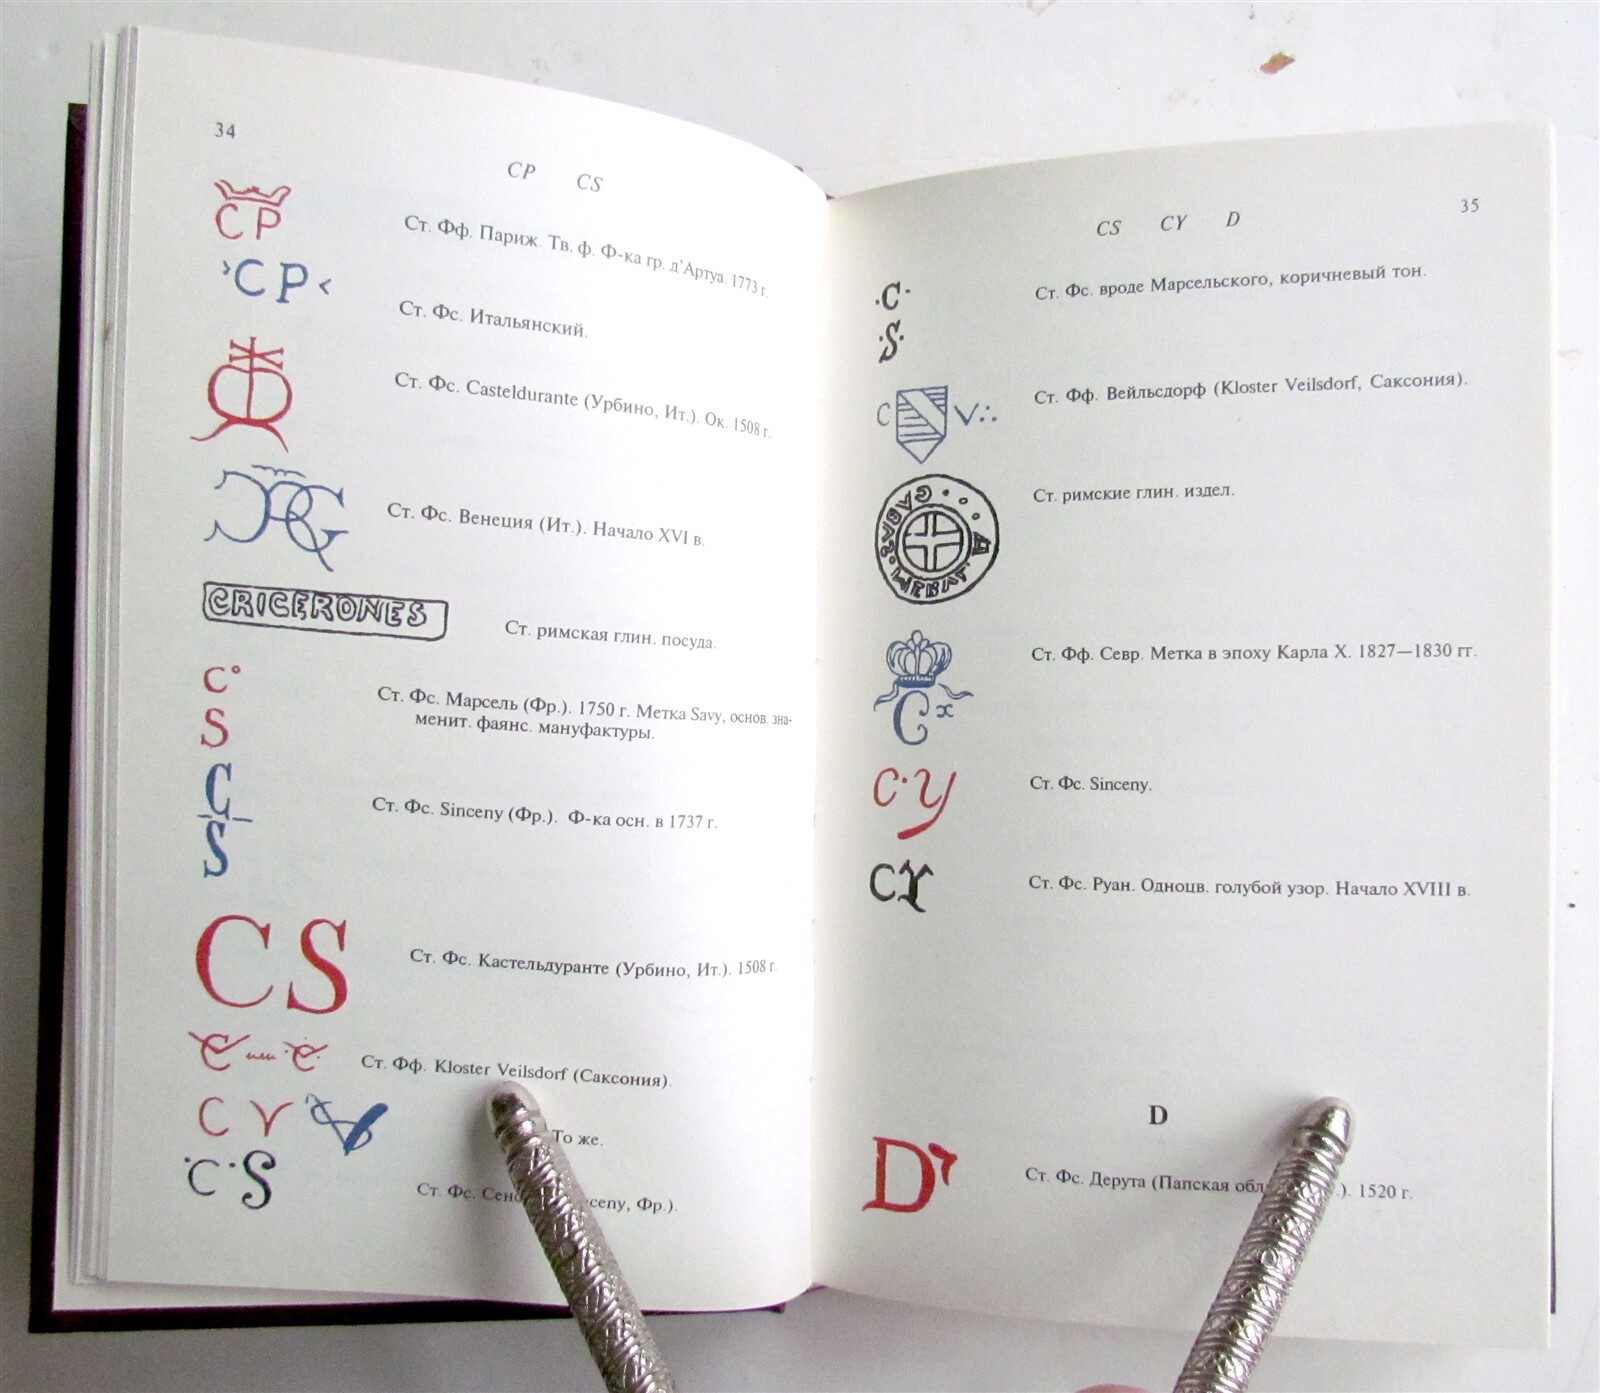 34
CP CS
CP
Ст. Фф. Париж. Тв. ф. Ф-ка гр. д'Артуа. 1773 г.
CP
Ст. Фс. Итальянский.
Ст. Фс. Casteldurante (Урбино, Ит.). Ок. 1508 г.
Ст. Фс. Венеция (Ит.). Начало XVI в.
CRICERONES
Ст. римская глин. посуда.
C°
S
Ст. Фс. Марсель (Фр.). 1750 г. Метка Savy, основ. зна-
менит. фаянс. мануфактуры.
C
S
Ст. Фс. Sinceny (Фр.). Ф-ка осн. в 1737 г.
CS
Ст. Фс. Кастельдуранте (Урбино, Ит.). 1508 г.
Ст. Фф. Kloster Veilsdorf (Саксония).
C V
То же.
·C·S
Ст. Фс. (Sinceny, Фр.).
35
CS CY D
·C·
·S·
Ст. Фс. вроде Марсельского, коричневый тон.
C V∴
Ст. Фф. Вейльсдорф (Kloster Veilsdorf, Саксония).
Ст. римские глин. издел.
C x
Ст. Фф. Севр. Метка в эпоху Карла X. 1827—1830 гг.
C·y
Ст. Фс. Sinceny.
CY
Ст. Фс. Руан. Одноцв. голубой узор. Начало XVIII в.
D
D
Ст. Фс. Дерута (Папская обл ). 1520 г.